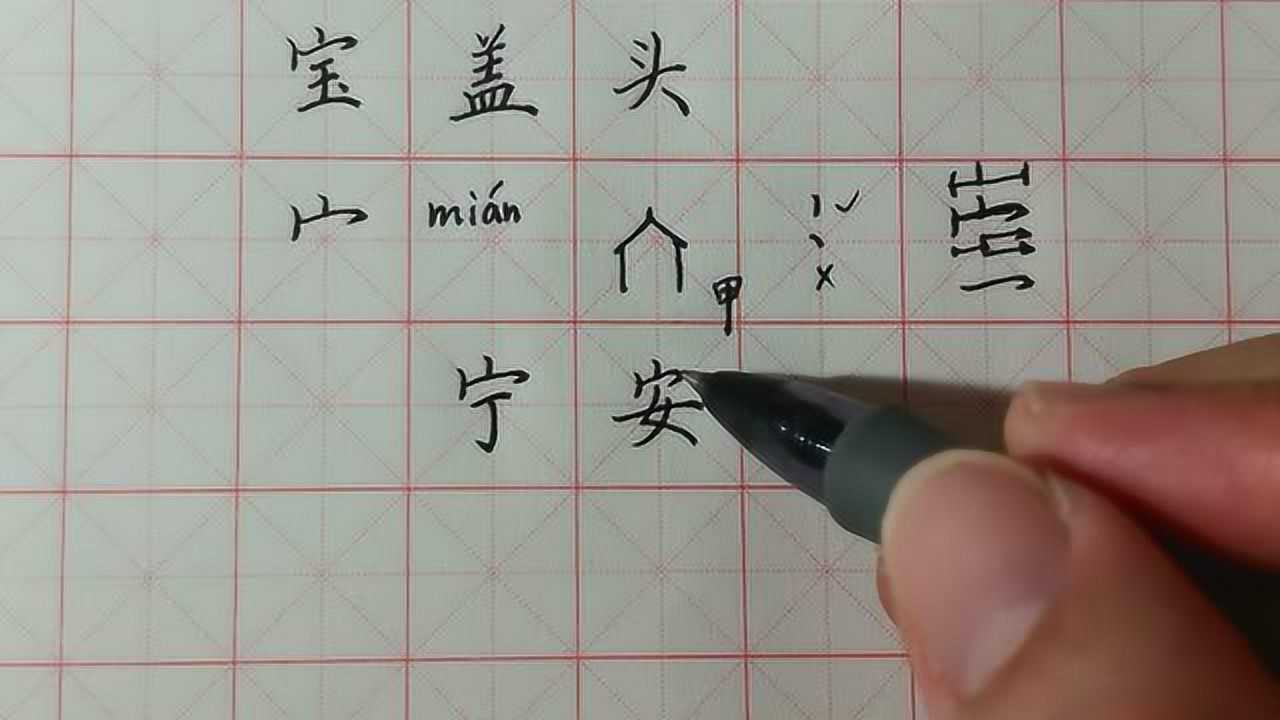 宝盖头
宀 mián 甲
宁安